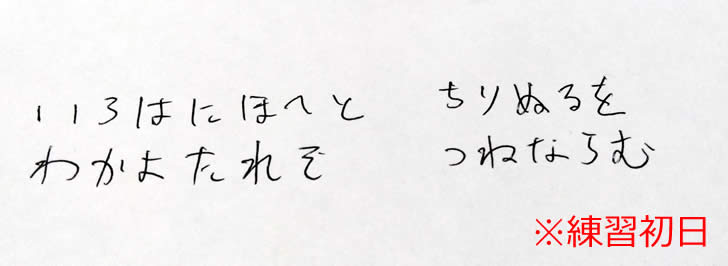 いろはにほへと ちりぬるを
わかよたれそ つねならむ
※練習初日